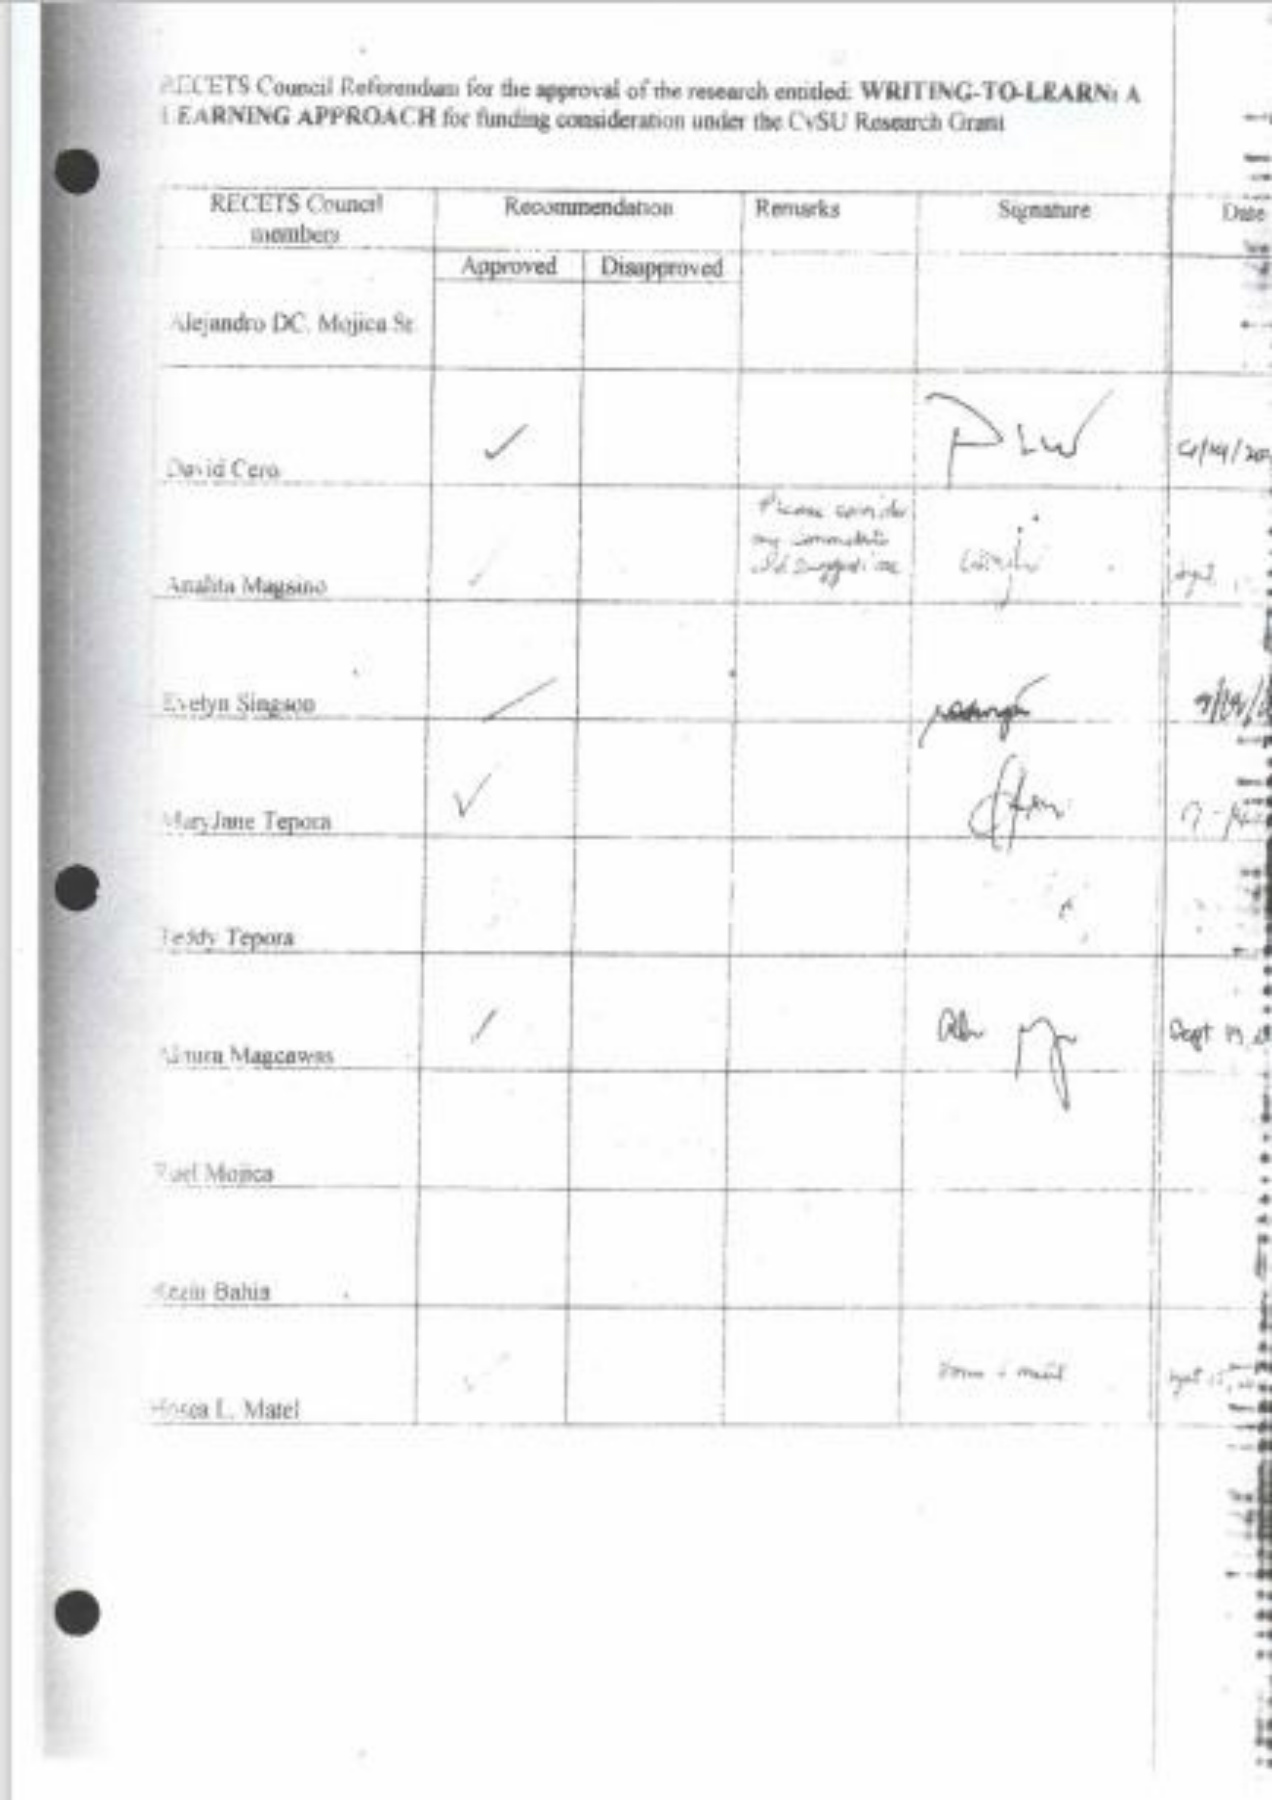 RECETS Council Referendum for the approval of the research entitled: WRITING-TO-LEARN: A
LEARNING APPROACH for funding consideration under the CvSU Research Grant
RECETS Council members
Recommendation
Remarks
Signature
Date
Approved
Disapproved
Alejandro DC. Mojica Sr.
David Cero
Please consider
my comments
and suggestions
Analita Magsino
Evelyn Singson
MaryJane Tepora
Teddy Tepora
Magcawas
Sept
Ruel Mojica
Bahia
Hosea L. Matel